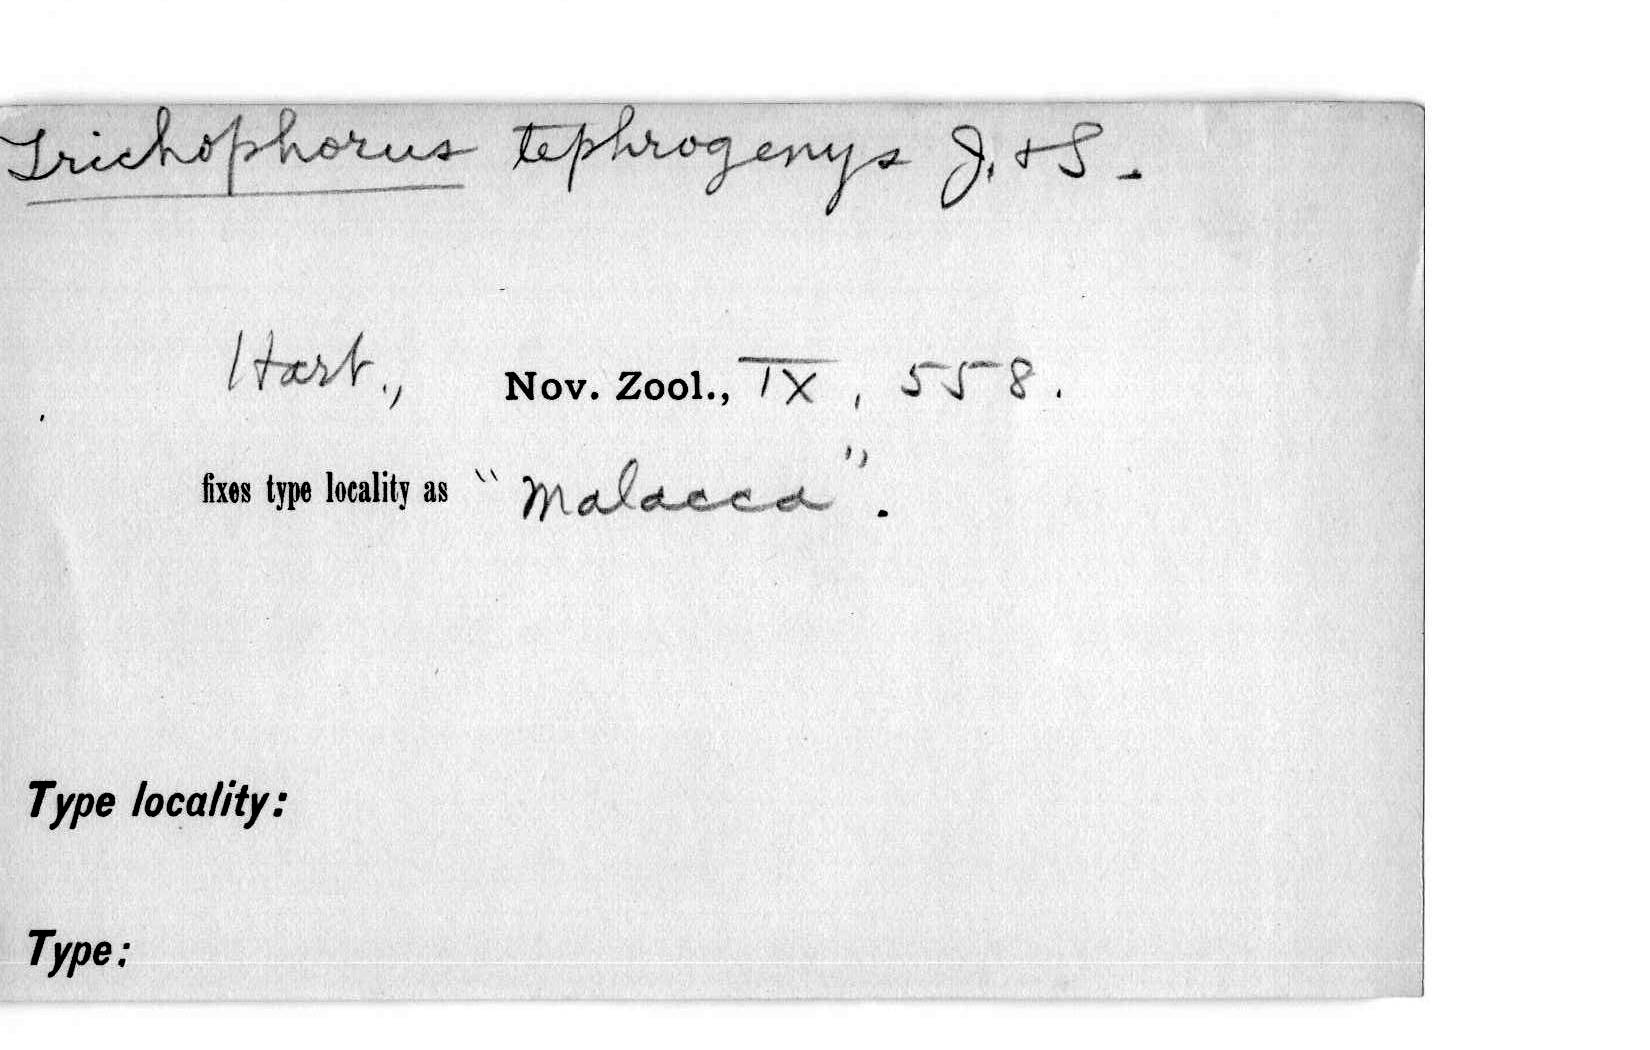 Trichophorus tephrogenys J. & S.
Hart., Nov. Zool., IX, 558.
fixes type locality as "Malacca".
Type locality:
Type: